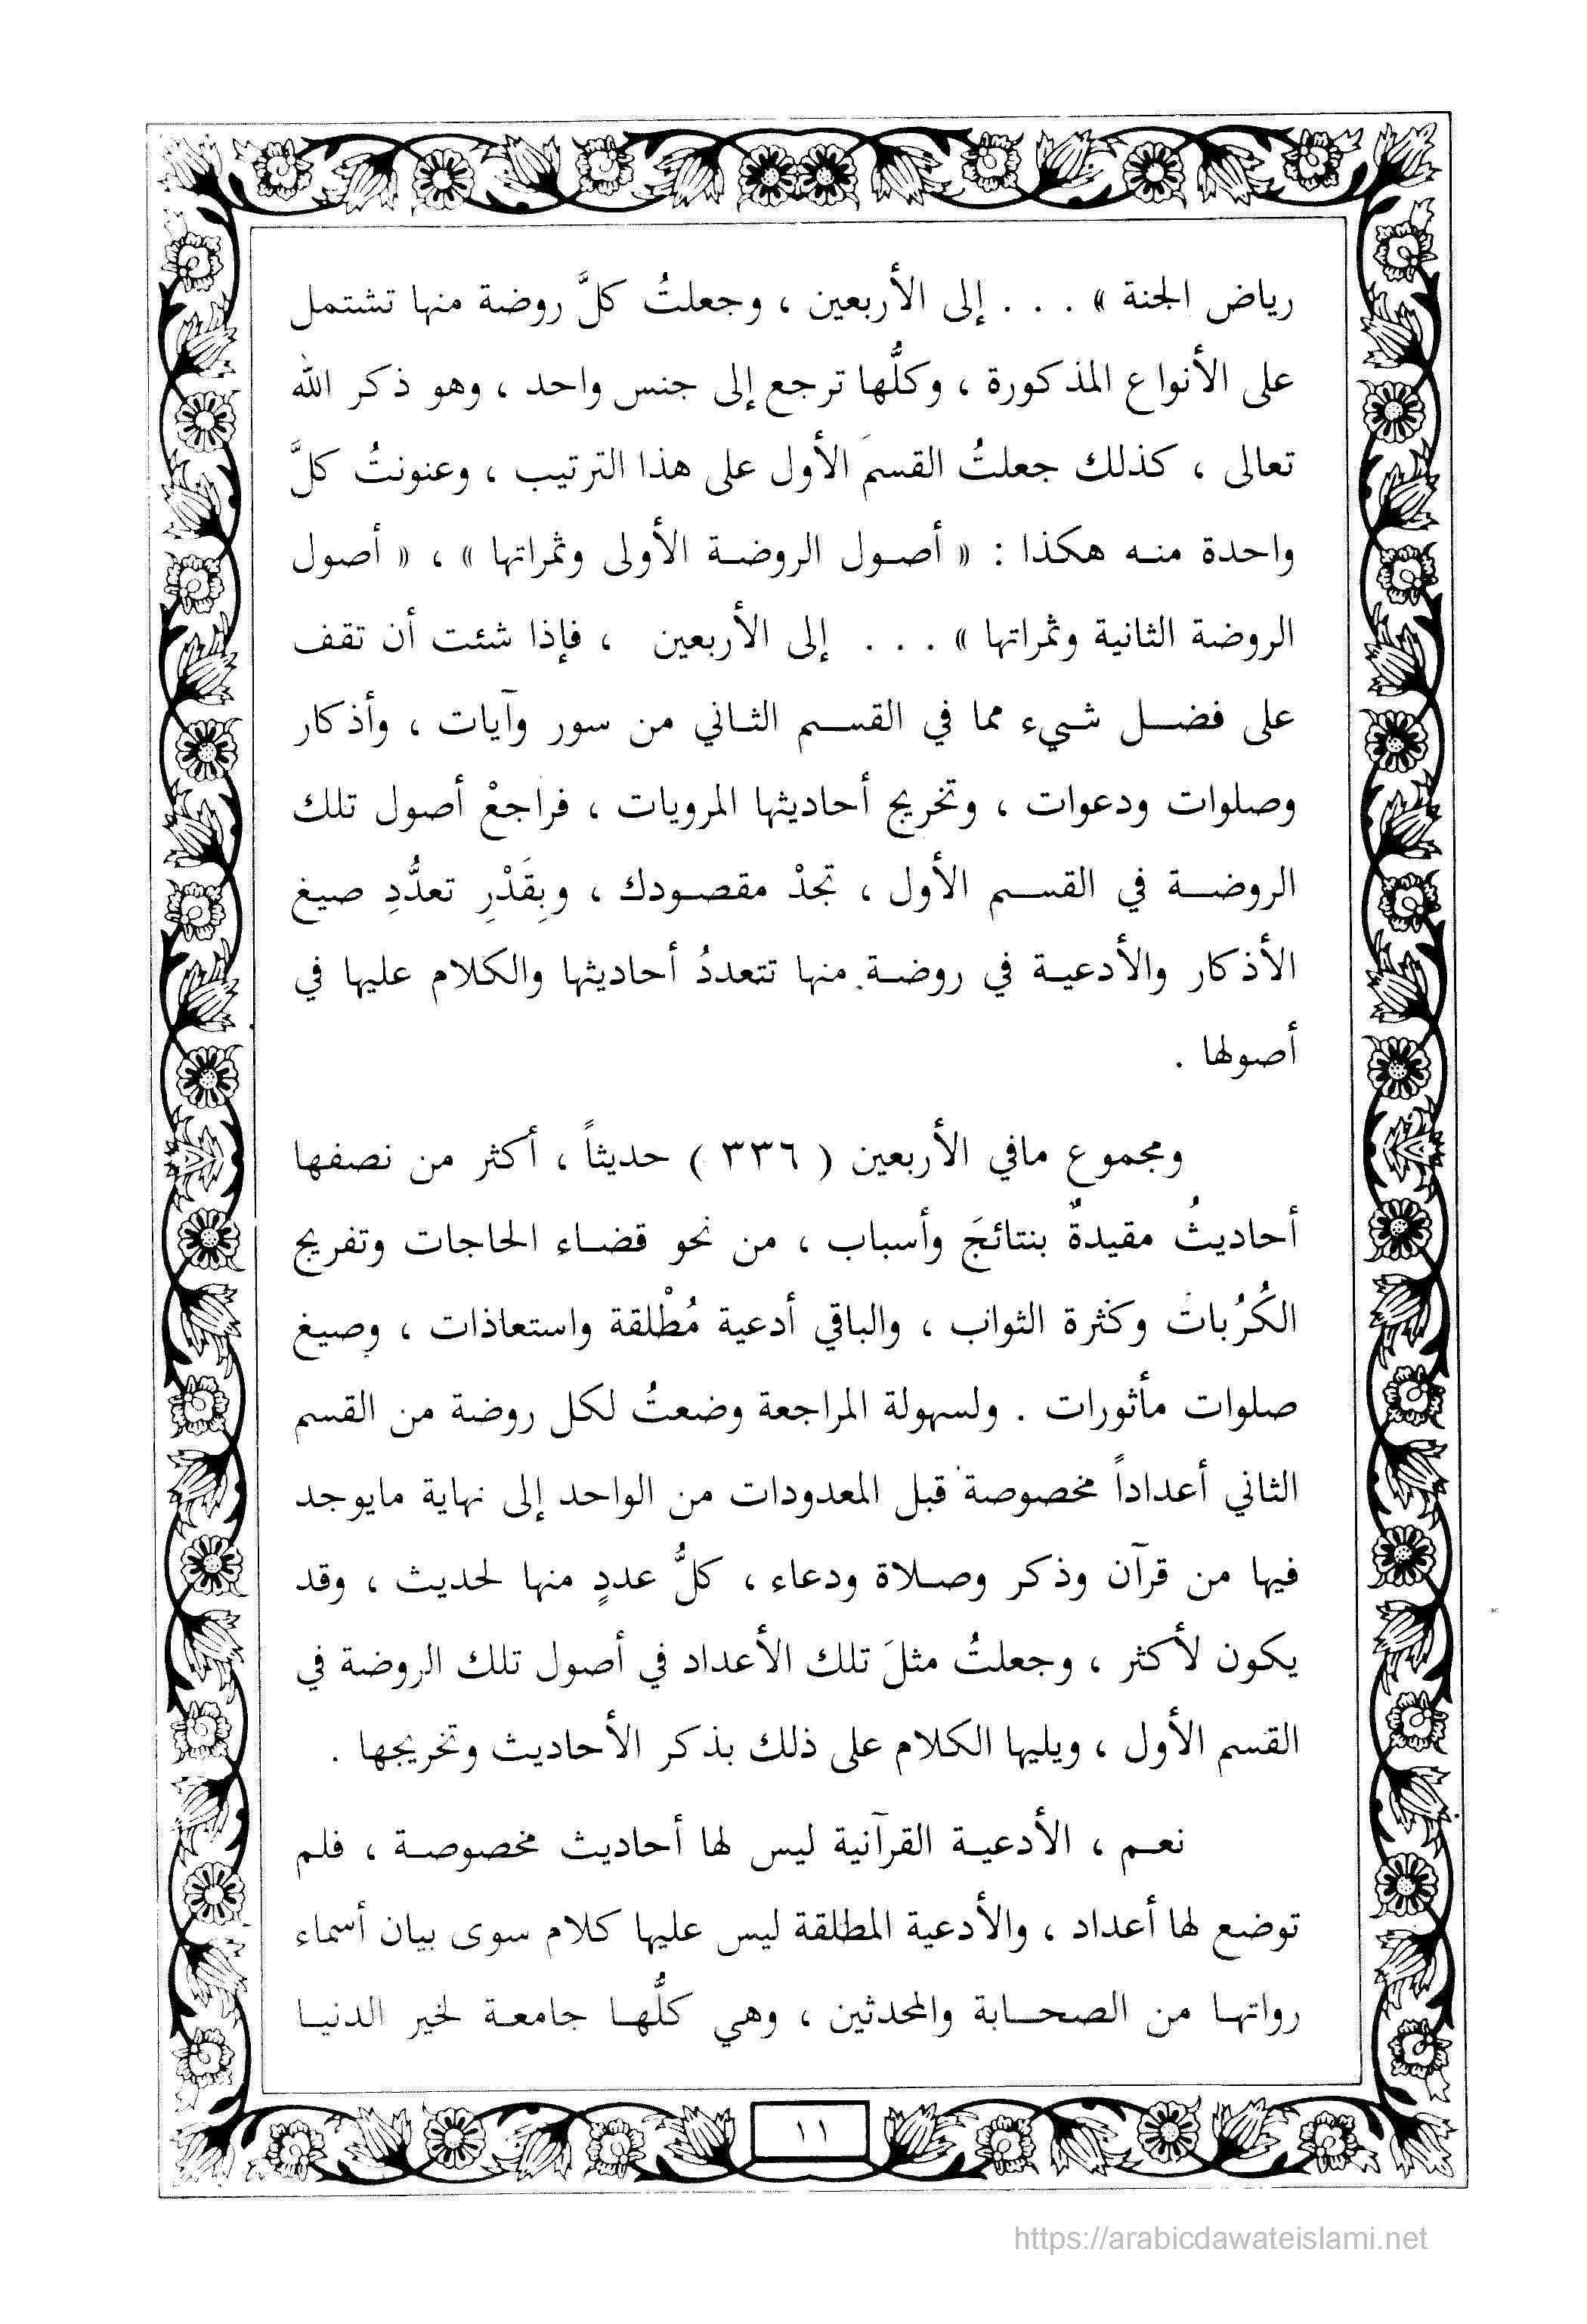 رياض الجنة » . . . إلى الأربعين ، وجعلتُ كلَّ روضة منها تشتمل
على الأنواع المذكورة ، وكلُّها ترجع إلى جنس واحد ، وهو ذكر الله
تعالى ، كذلك جعلتُ القسمَ الأول على هذا الترتيب ، وعنونتُ كلَّ
واحدة منه هكذا : « أصول الروضة الأولى وثمراتها » ، « أصول
الروضة الثانية وثمراتها » . . . إلى الأربعين ، فإذا شئت أن تقف
على فضل شيء مما في القسم الثاني من سور وآيات ، وأذكار
وصلوات ودعوات ، وتخريج أحاديثها المرويات ، فراجعْ أصول تلك
الروضة في القسم الأول ، تجدْ مقصودك ، وبِقَدْرِ تعدُّدِ صيغ
الأذكار والأدعية في روضة منها تتعددُ أحاديثها والكلام عليها في
أصولها .
ومجموع مافي الأربعين ( ٣٣٦ ) حديثاً ، أكثر من نصفها
أحاديثُ مقيدةٌ بنتائجَ وأسباب ، من نحو قضاء الحاجات وتفريج
الكُرُبات وكثرة الثواب ، والباقي أدعية مُطْلقة واستعاذات ، وصيغ
صلوات مأثورات . ولسهولة المراجعة وضعتُ لكل روضة من القسم
الثاني أعداداً مخصوصة قبل المعدودات من الواحد إلى نهاية مايوجد
فيها من قرآن وذكر وصلاة ودعاء ، كلُّ عددٍ منها لحديث ، وقد
يكون لأكثر ، وجعلتُ مثلَ تلك الأعداد في أصول تلك الروضة في
القسم الأول ، ويليها الكلام على ذلك بذكر الأحاديث وتخريجها .
نعم ، الأدعية القرآنية ليس لها أحاديث مخصوصة ، فلم
توضع لها أعداد ، والأدعية المطلقة ليس عليها كلام سوى بيان أسماء
رواتها من الصحابة والمحدثين ، وهي كلُّها جامعة لخير الدنيا
١١
https://arabicdawateislami.net